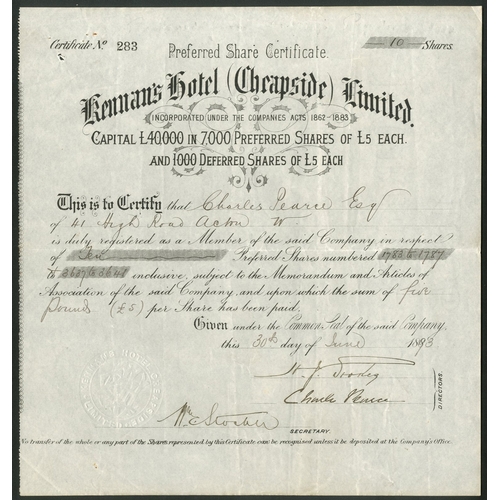 Certificate No 283
Preferred Share Certificate.
10 Shares.
Kennan's Hotel (Cheapside) Limited.
INCORPORATED UNDER THE COMPANIES ACTS 1862-1883
CAPITAL £40,000 IN 7,000 PREFERRED SHARES OF £5 EACH.
AND 1000 DEFERRED SHARES OF £5 EACH
This is to Certify that Charles Pearce Esq
of 41 High Road Acton W
is duly registered as a Member of the said Company in respect
of Ten Preferred Shares numbered 1783 to 1787
to inclusive, subject to the Memorandum and Articles of
Association of the said Company, and upon which the sum of five
pounds (£5) per Share has been paid.
Given under the Common Seal of the said Company,
this 30th day of June 1893
Charles Pearce
DIRECTORS.
SECRETARY.
No transfer of the whole or any part of the Shares represented by this Certificate can be recognised unless it be deposited at the Company's Office.